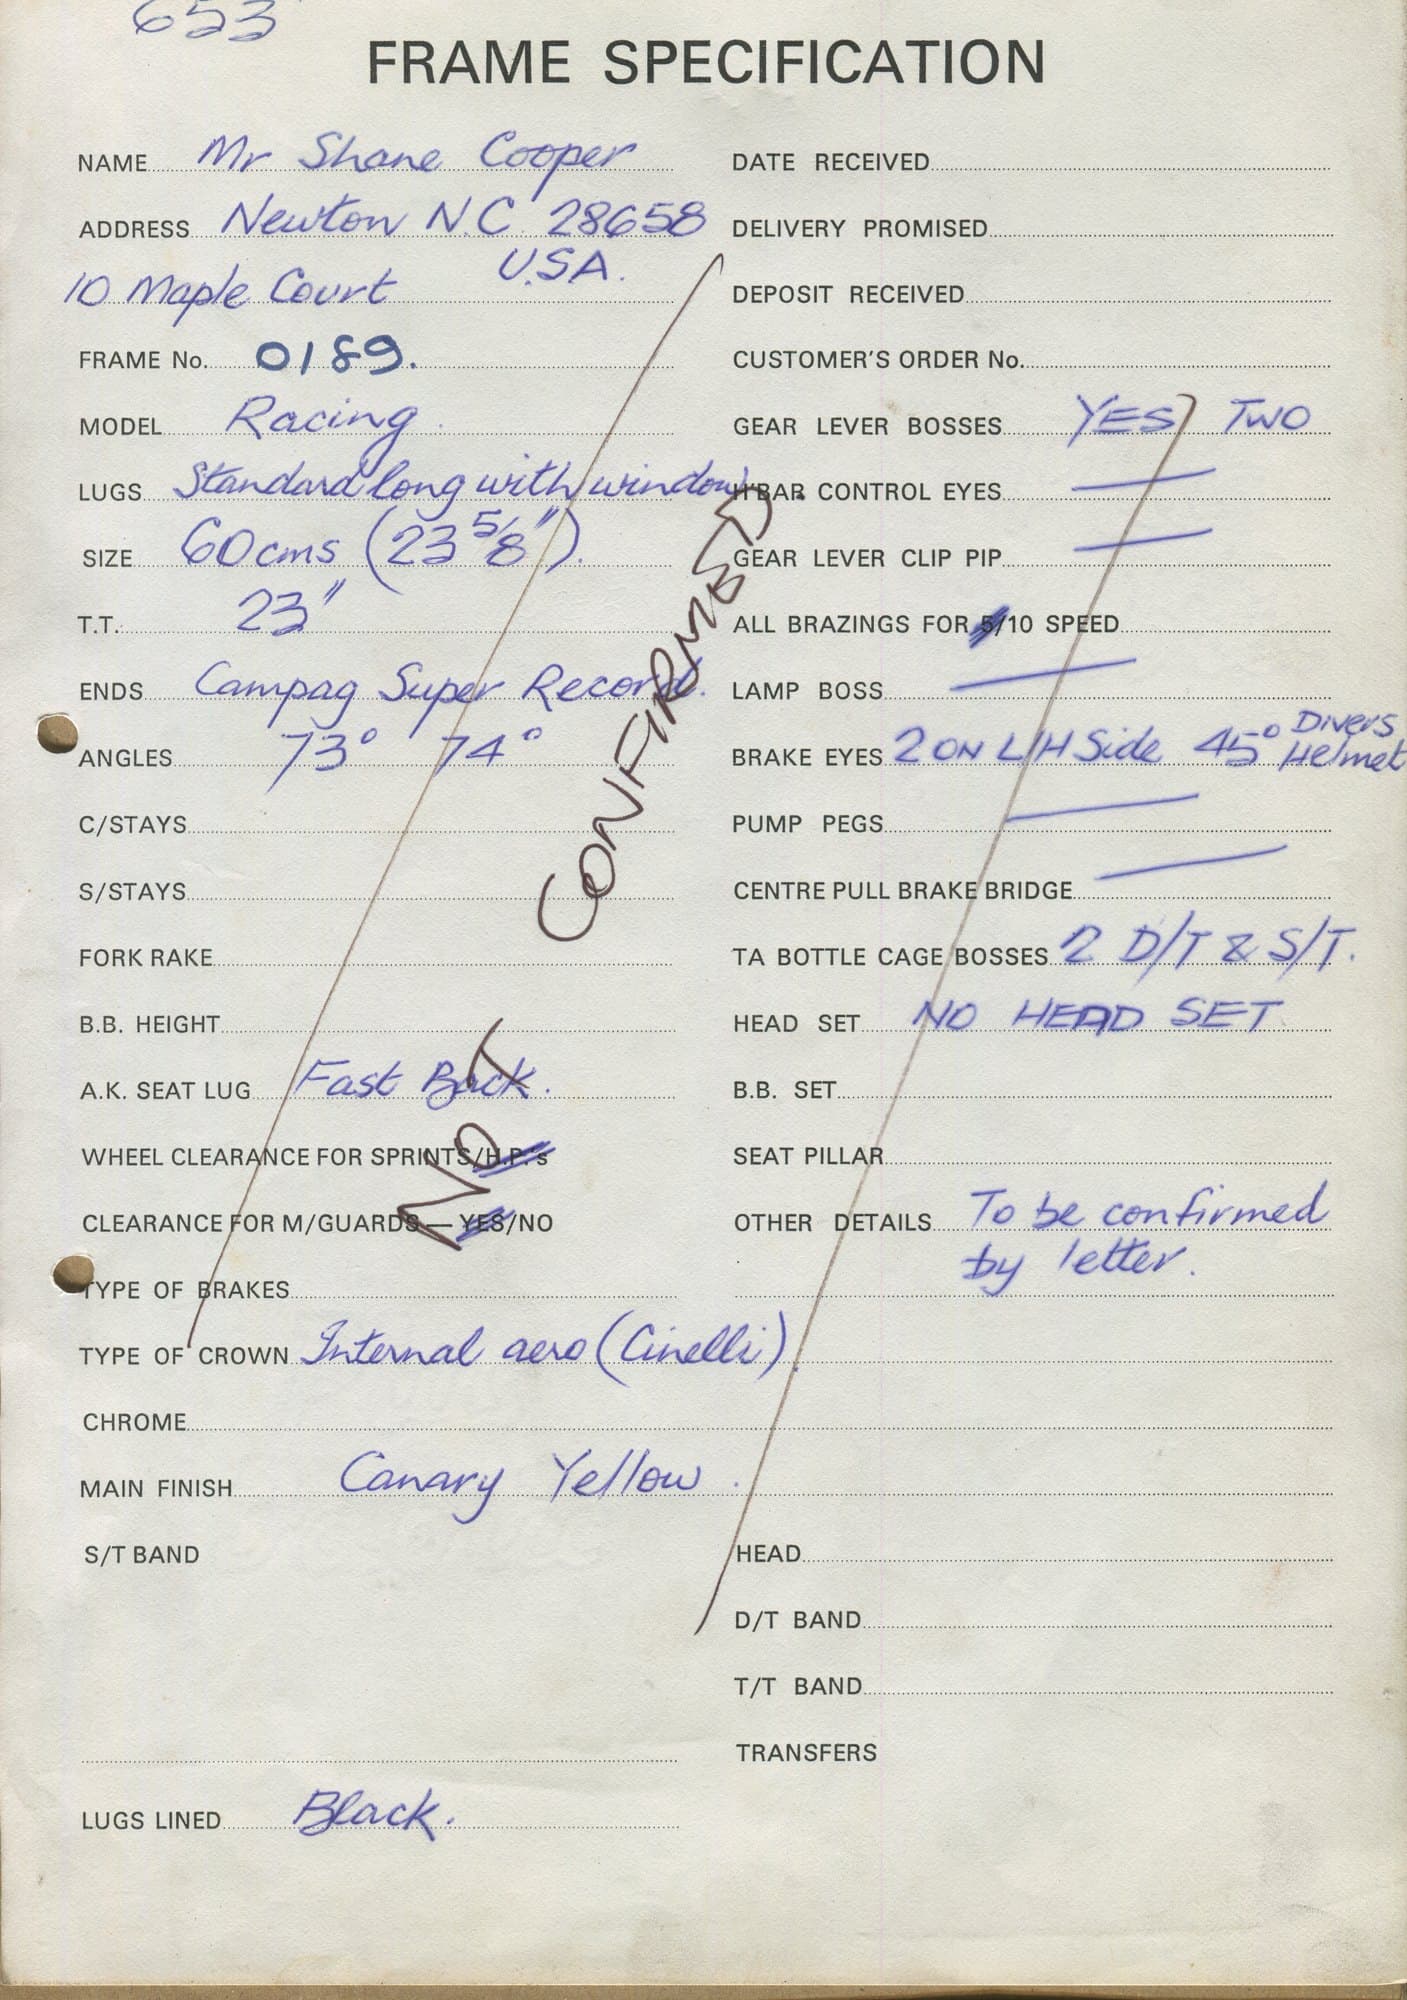 653
FRAME SPECIFICATION
NAME Mr Shane Cooper
ADDRESS Newton N.C. 28658
U.S.A.
10 Maple Court
FRAME No. 0189.
MODEL Racing
LUGS Standard long with window
SIZE 60cms (23 5/8").
T.T. 23"
ENDS Campag Super Record.
ANGLES 73° 74°
C/STAYS
S/STAYS
FORK RAKE
B.B. HEIGHT
A.K. SEAT LUG Fast Back.
WHEEL CLEARANCE FOR SPRINTS/H.P.'s
CLEARANCE FOR M/GUARDS — YES/NO
TYPE OF BRAKES
TYPE OF CROWN Internal aero (Cinelli).
CHROME
MAIN FINISH Canary Yellow.
S/T BAND
LUGS LINED Black.
NOT CONFIRMED.
DATE RECEIVED
DELIVERY PROMISED
DEPOSIT RECEIVED
CUSTOMER'S ORDER No.
GEAR LEVER BOSSES YES TWO
H'BAR CONTROL EYES —
GEAR LEVER CLIP PIP —
ALL BRAZINGS FOR 5/10 SPEED
LAMP BOSS —
BRAKE EYES 2 ON L/H Side 45° Divers Helmet
PUMP PEGS —
CENTRE PULL BRAKE BRIDGE —
TA BOTTLE CAGE BOSSES 2 D/T & S/T.
HEAD SET NO HEAD SET
B.B. SET
SEAT PILLAR
OTHER DETAILS To be confirmed
by letter.
HEAD
D/T BAND
T/T BAND
TRANSFERS